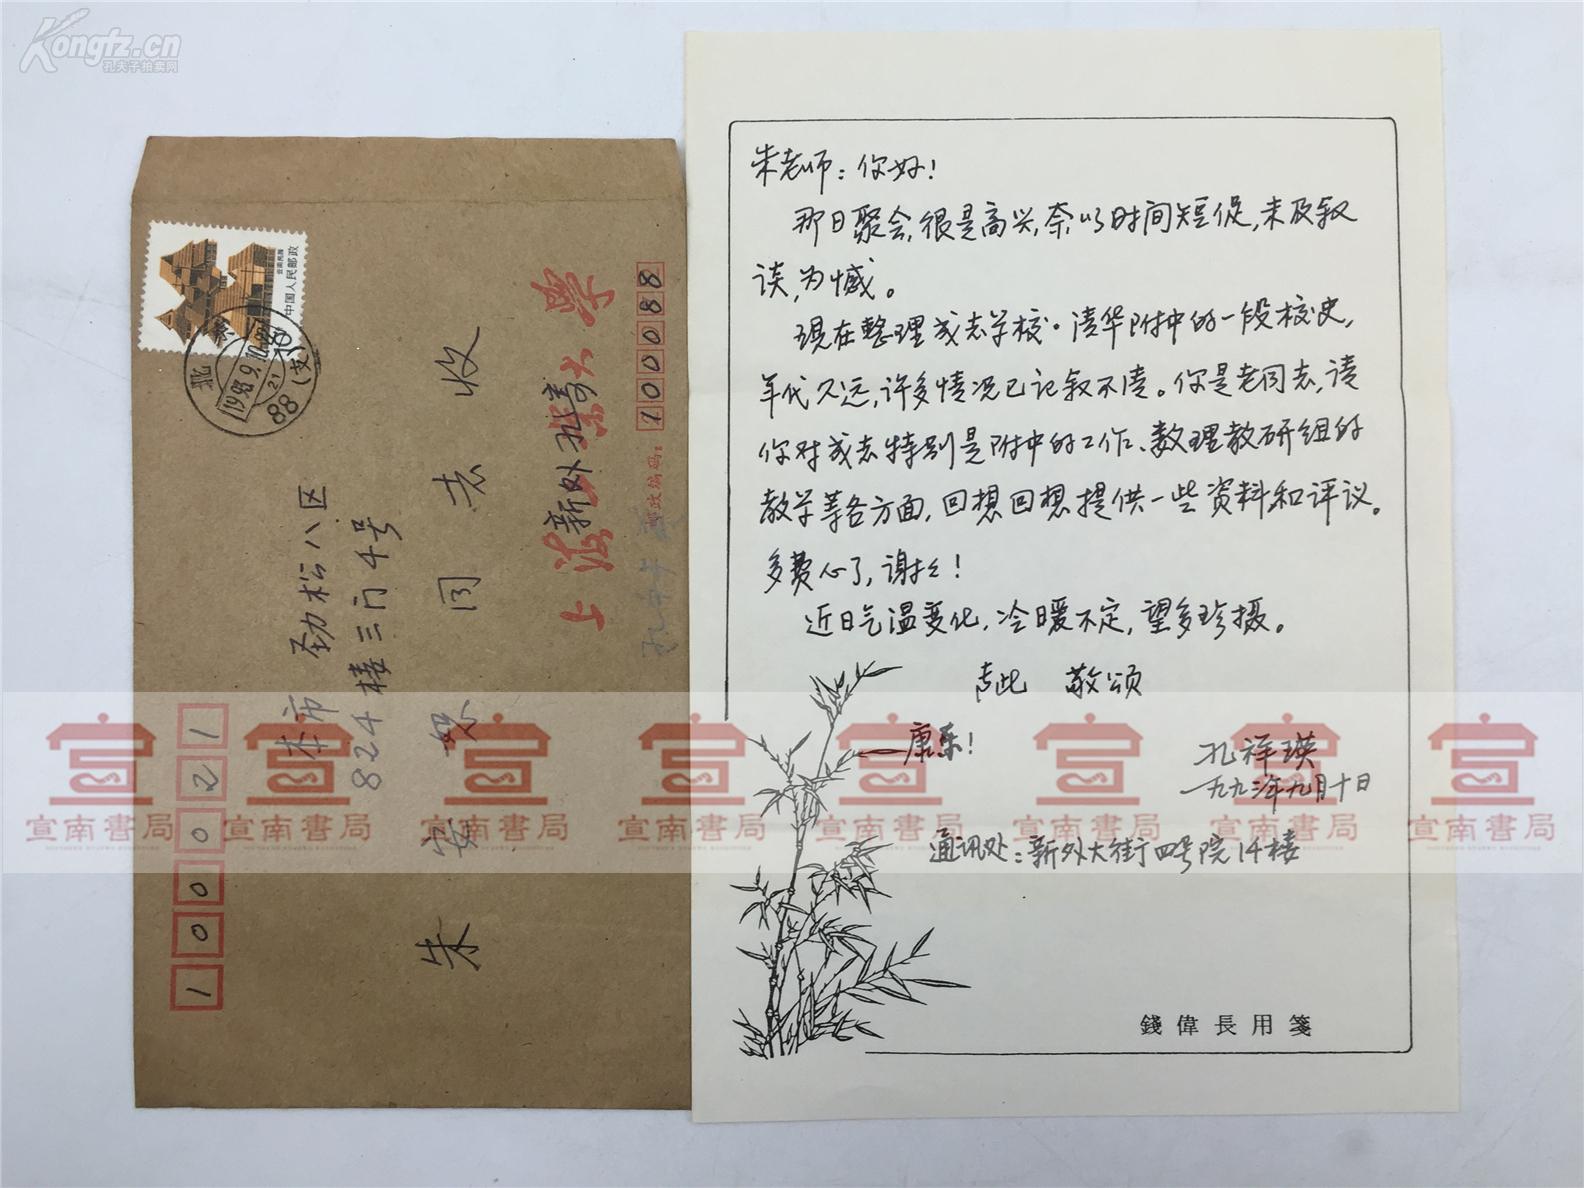 Kongfz.cn
孔夫子拍卖网
朱老师：你好！
那日聚会，很是高兴，奈以时间短促，未及叙
谈，为憾。
现在整理成志学校·清华附中的一段校史，
年代久远，许多情况已记叙不清。你是老同志，请
你对成志特别是附中的工作、数理教研组的
教学等各方面，回想回想提供一些资料和评议。
多费心了，谢谢！
近日气温变化，冷暖不定，望多珍摄。
专此 敬颂
康乐！
孔祥瑛
一九九三年九月十日
通讯处：新外大街四号院14楼
錢偉長用箋
100021
本市
劲松八区
824楼三门4号
朱安 同志收
上海 大學
新外
邮政编码：
100088
中国人民邮政
云南民居
北京
1993.9.10
21
88(支)
宣南書局
宣南書局
宣南書局
宣南書局
宣南書局
宣南書局
宣南書局
宣南書局